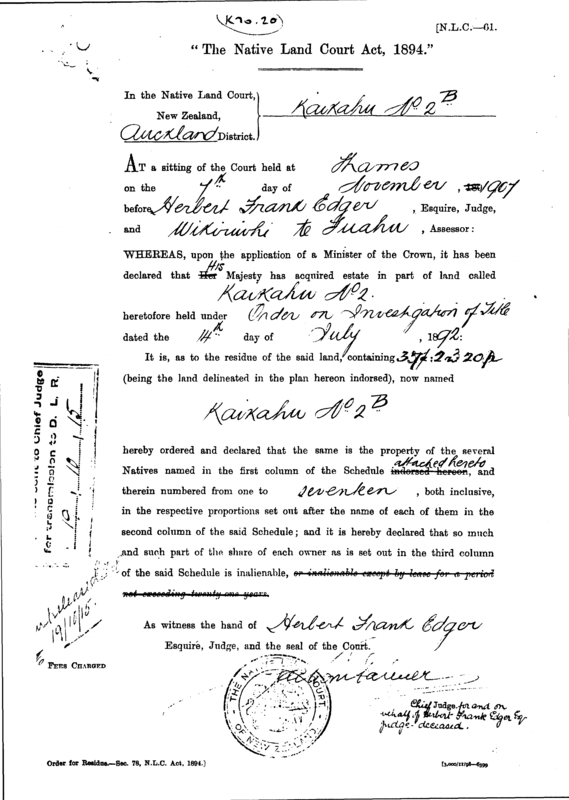 (K70.20)
[N.L.C.—61.
"The Native Land Court Act, 1894."
In the Native Land Court,
New Zealand,
Auckland District.
Kaikahu No 2B
AT a sitting of the Court held at Thames
on the 7th day of November, 1907
before Herbert Frank Edger, Esquire, Judge,
and Wikiriwhi te Tuahu, Assessor:
WHEREAS, upon the application of a Minister of the Crown, it has been
His
declared that Her Majesty has acquired estate in part of land called
Kaikahu No 2.
heretofore held under Order on Investigation of Title
dated the 14th day of July, 1892:
It is, as to the residue of the said land, containing 37a: 2r 20p
(being the land delineated in the plan hereon indorsed), now named
Kaikahu No 2B
hereby ordered and declared that the same is the property of the several
attached hereto
Natives named in the first column of the Schedule indorsed hereon, and
therein numbered from one to seventeen, both inclusive,
in the respective proportions set out after the name of each of them in the
second column of the said Schedule; and it is hereby declared that so much
and such part of the share of each owner as is set out in the third column
of the said Schedule is inalienable, or inalienable except by lease for a period
not exceeding twenty-one years.
As witness the hand of Herbert Frank Edger
Esquire, Judge, and the seal of the Court.
to Chief Judge
for transmission to D. L. R.
19/10/15
19/10/15.
FEES CHARGED
THE NATIVE LAND COURT
OF NEW ZEALAND
Chief Judge for and on
behalf of Herbert Frank Edger Esq
Judge deceased.
Order for Residue.—Sec. 78, N.L.C. Act, 1894.]
[3,000/11/98—6599